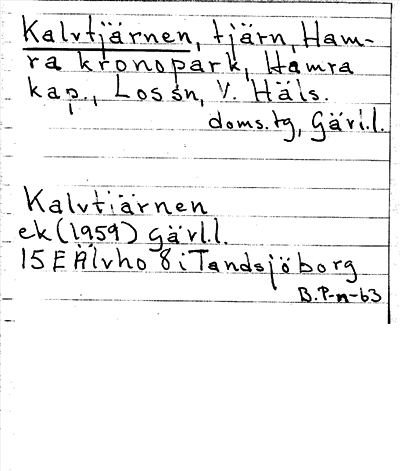 Kalvtjärnen, tjärn, Ham-
ra kronopark, Hamra
kap., Los sn, V. Häls.
doms.tg, Gävl.l.
Kalvtjärnen
ek (1959) Gävl.l.
15 E Älvho 8 i Tandsjöborg
B.P-n-63